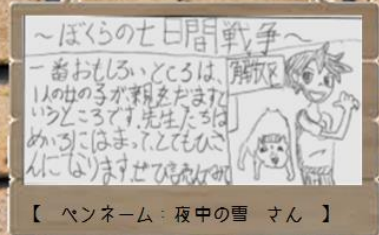 ～ぼくらの七日間戦争～
一番おもしろいところは、
1人の女の子が親をだますと
いうところです。先生たちは
めいろにはまって、とてもひさ
んになります。ぜひ読んでみて
解放区
【 ペンネーム：夜中の雪 さん 】